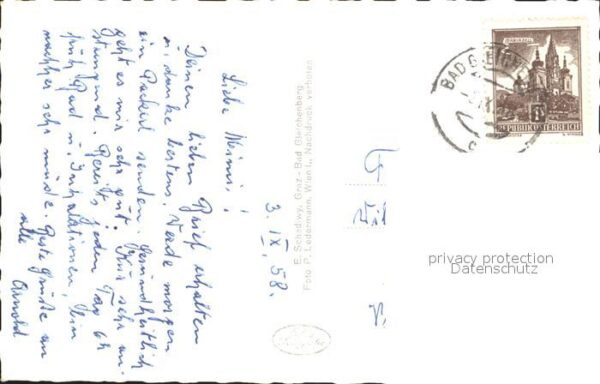 3. IX. 58.
Liebe Mimi!
Deinen lieben Brief erhalten
u. danke bestens. Werde morgen
ein Packerl senden. Gesundheitlich
geht es mir sehr gut. Nur sehr an-
strengend. Bereits jeden Tag 6h
früh Bad u. Inhalationen, bin
nachher sehr müde. Beste Grüße an
alle Arnold
E. Schadiwy, Graz - Bad Gleichenberg.
Foto P. Ledermann, Wien I., Nachdruck verboten
BAD GLEICH
REPUBLIK ÖSTERREICH
privacy protection
Datenschutz